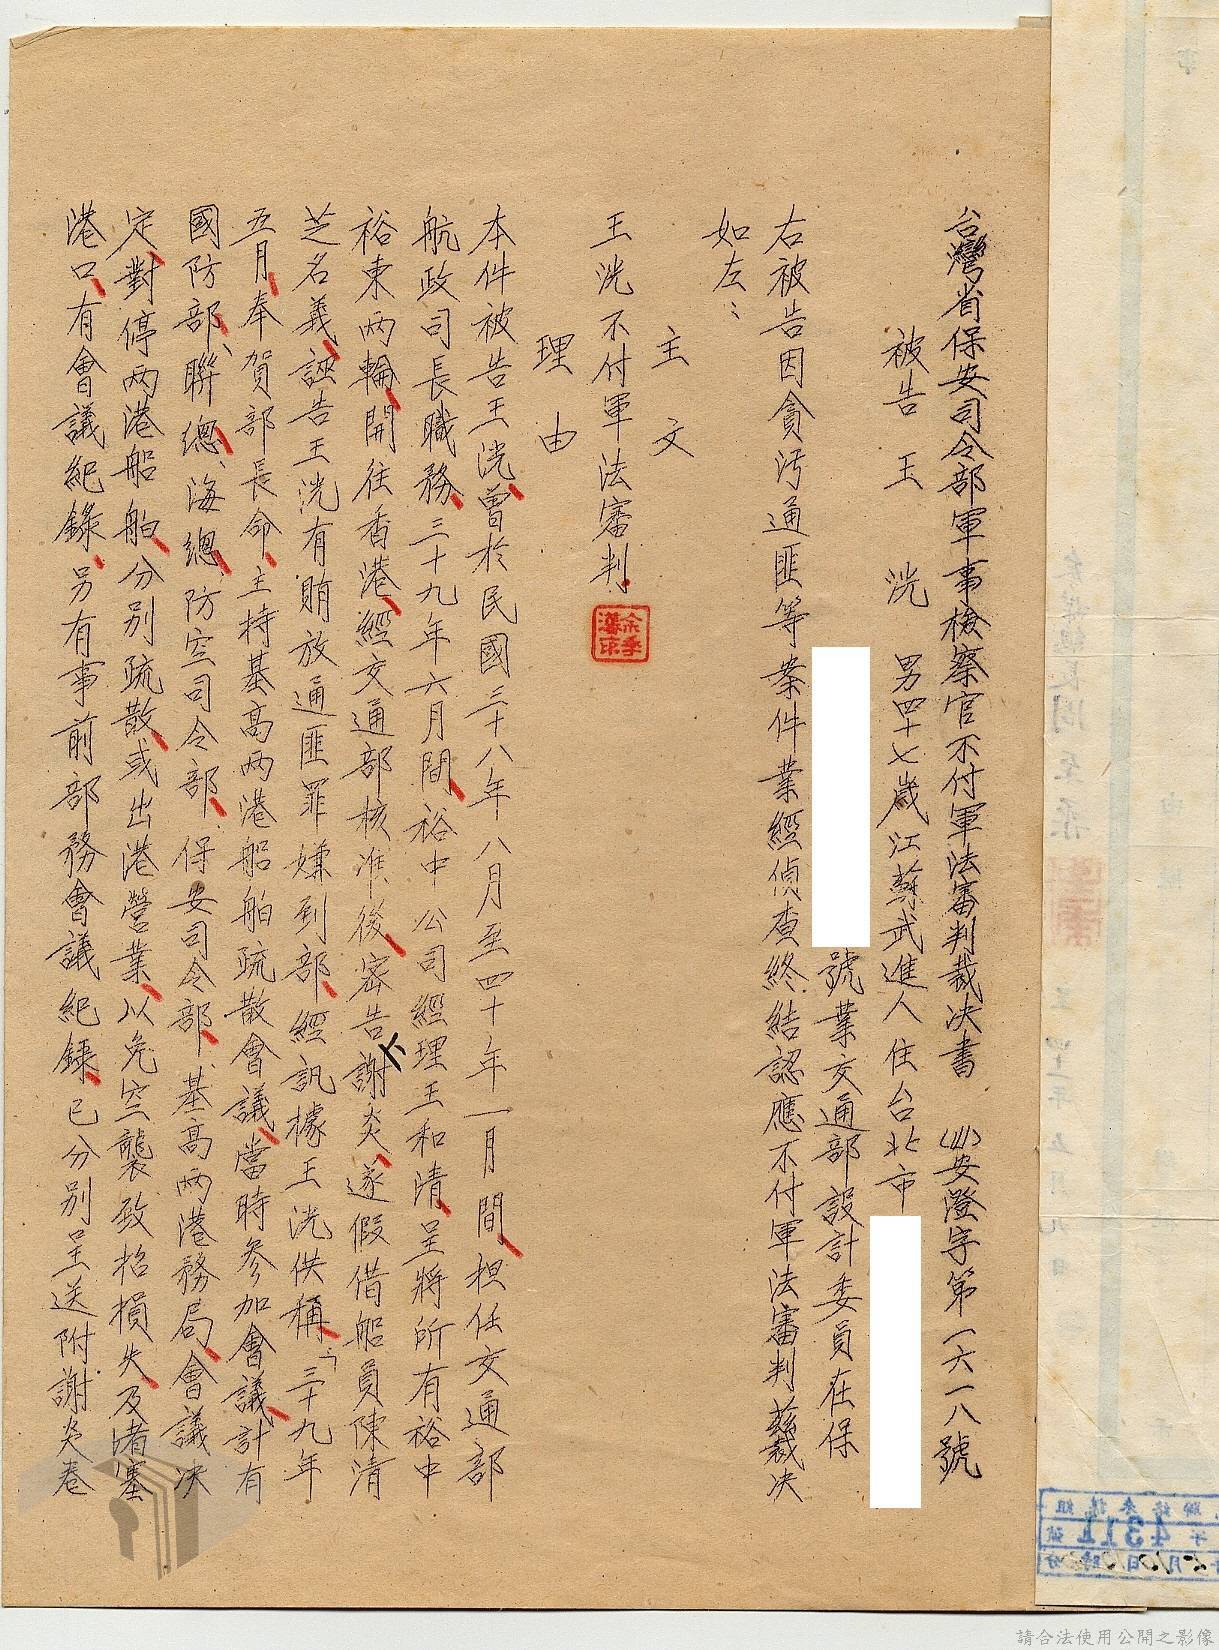 台灣省保安司令部軍事檢察官不付軍法審判裁決書　(41)安澄字第一六一八號
被告　王　洸　男四十七歲江蘇武進人住台北市
號業交通部設計委員在保
右被告因貪污通匪等案件業經偵查終結認應不付軍法審判茲裁決
如左：
主　文
王洸不付軍法審判
理　由
本件被告王洸、曾於民國三十八年八月至四十年一月間、担任交通部
航政司長職務、三十九年六月間、裕中公司經理王和清、呈將所有裕中
裕東兩輪、開往香港、經交通部核准後、密告謝炎、遂假借船員陳清
芝名義、誣告王洸有賄放通匪罪嫌到部、經訊據王洸供稱、「三十九年
五月、奉賀部長命、主持基高兩港船舶疏散會議、當時參加會議、計有
國防部、聯總、海總、防空司令部、保安司令部、基高兩港務局、會議決
定、對停兩港船舶、分別疏散、或出港營業、以免空襲致招損失、及堵塞
港口、有會議紀錄、另有事前部務會議紀錄、已分別呈送附謝炎卷
請合法使用公開之影像
4311